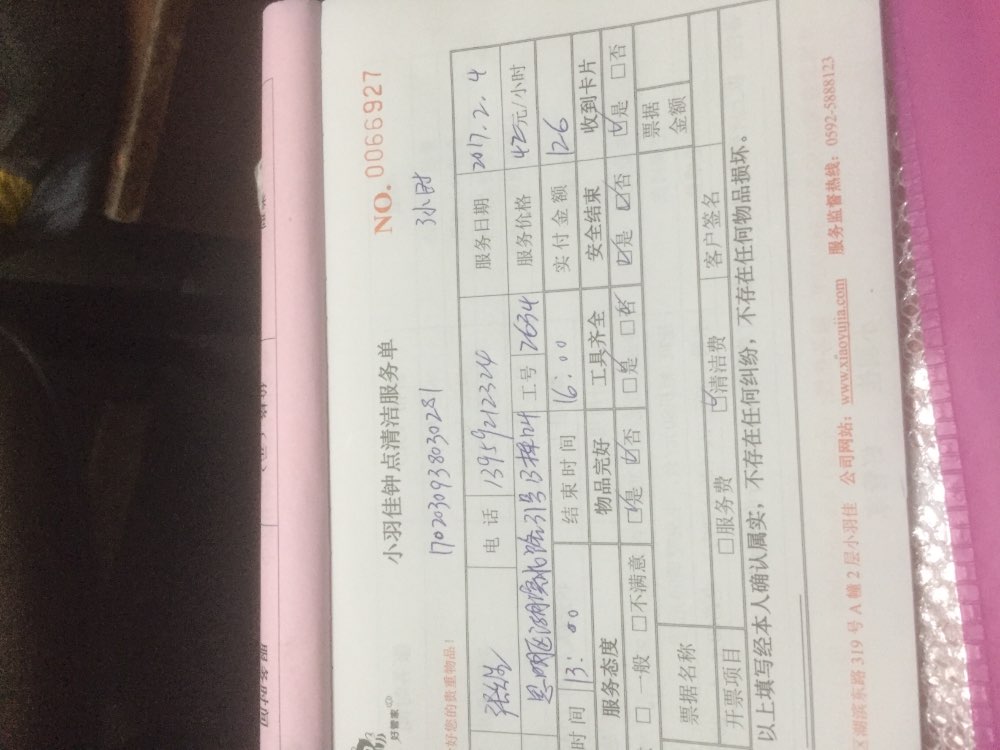 NO. 0066927
小羽佳钟点清洁服务单
3小时
1702030938030281
好管家
好您的贵重物品!
电话 13959212324 服务日期 2017.2.4
思明区湖滨北路31号 工号 2634 服务价格 42元/小时
时间 13:00 结束时间 16:00 实付金额 126
服务态度 物品完好 工具齐全 安全结束 收到卡片
□一般 □不满意 ☑是 ☑否 □是 □否 ☑是 ☑否 ☑是 □否
票据名称 票据金额
开票项目 □服务费 ☑清洁费 客户签名
以上填写经本人确认属实,不存在任何纠纷,不存在任何物品损坏。
区湖滨东路 319 号 A 幢 2 层小羽佳 公司网站:www.xiaoyujia.com 服务监督热线:0592-5888123